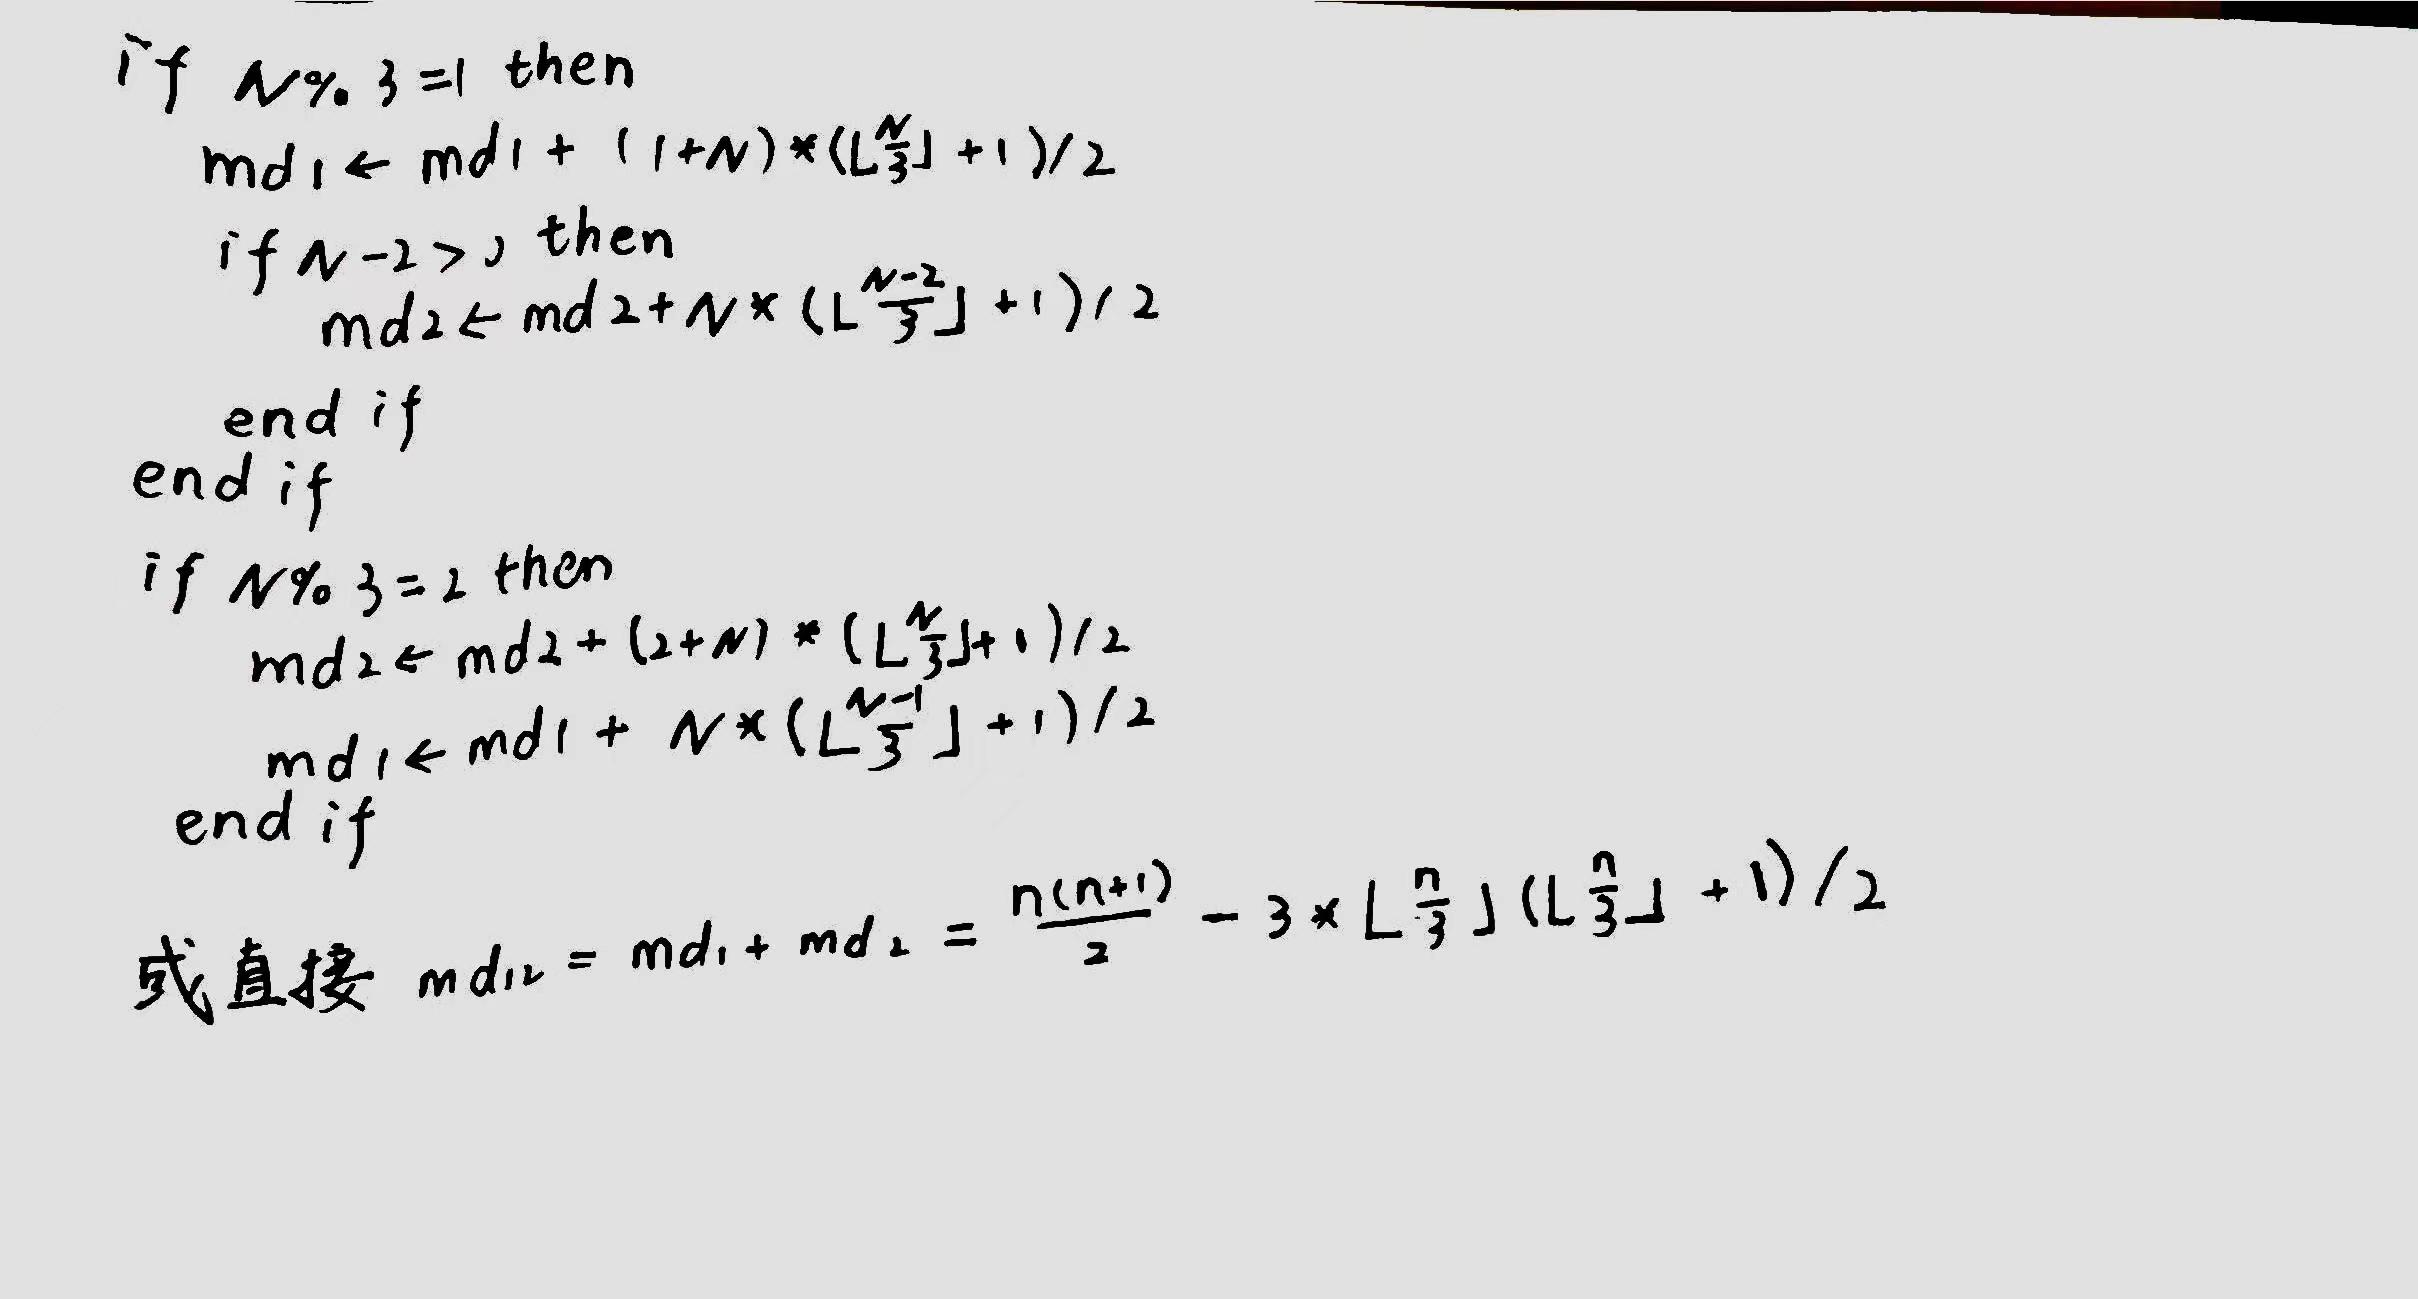 if N%3=1 then
md1 ← md1 + (1+N)*(⌊N/3⌋+1)/2
if N-2>0 then
md2 ← md2+N*(⌊N-2/3⌋+1)/2
end if
end if
if N%3=2 then
md2 ← md2+(2+N)*(⌊N/3⌋+1)/2
md1 ← md1 + N*(⌊N-1/3⌋+1)/2
end if
或直接 md₁₂ = md₁+md₂ = n(n+1)/2 - 3*⌊n/3⌋(⌊n/3⌋+1)/2